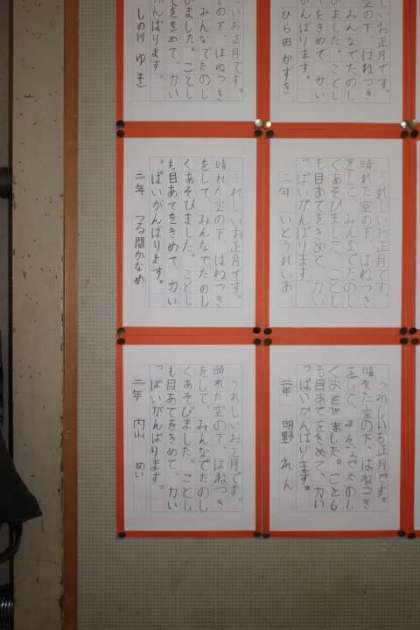 いお正月です。
の下、はねつき
みんなでたのし
びました。ことし
てをきめて、力い
がんばります。
ひら田 かずき
いお正月です。
の下、はねつき
みんなでたのし
びました。ことし
てをきめて、力い
がんばります。
しの川 ゆき
うれしいお正月です。
晴れた空の下、はねつき
をして、みんなでたのし
くあそびました。ことし
も目あてをきめて、力い
っぱいがんばります。
二年 いとうれいお
うれしいお正月です。
晴れた空の下、はねつき
をして、みんなでたのし
くあそびました。ことし
も目あてをきめて、力い
っぱいがんばります。
二年 つる間かなめ
うれしいお正月です。
晴れた空の下、はねつき
をして、みんなでたのし
くあそびました。ことし
も目あてをきめて、力い
っぱいがんばります。
二年 明野 れん
うれしいお正月です。
晴れた空の下、はねつき
をして、みんなでたのし
くあそびました。ことし
も目あてをきめて、力い
っぱいがんばります。
二年 内山 めい